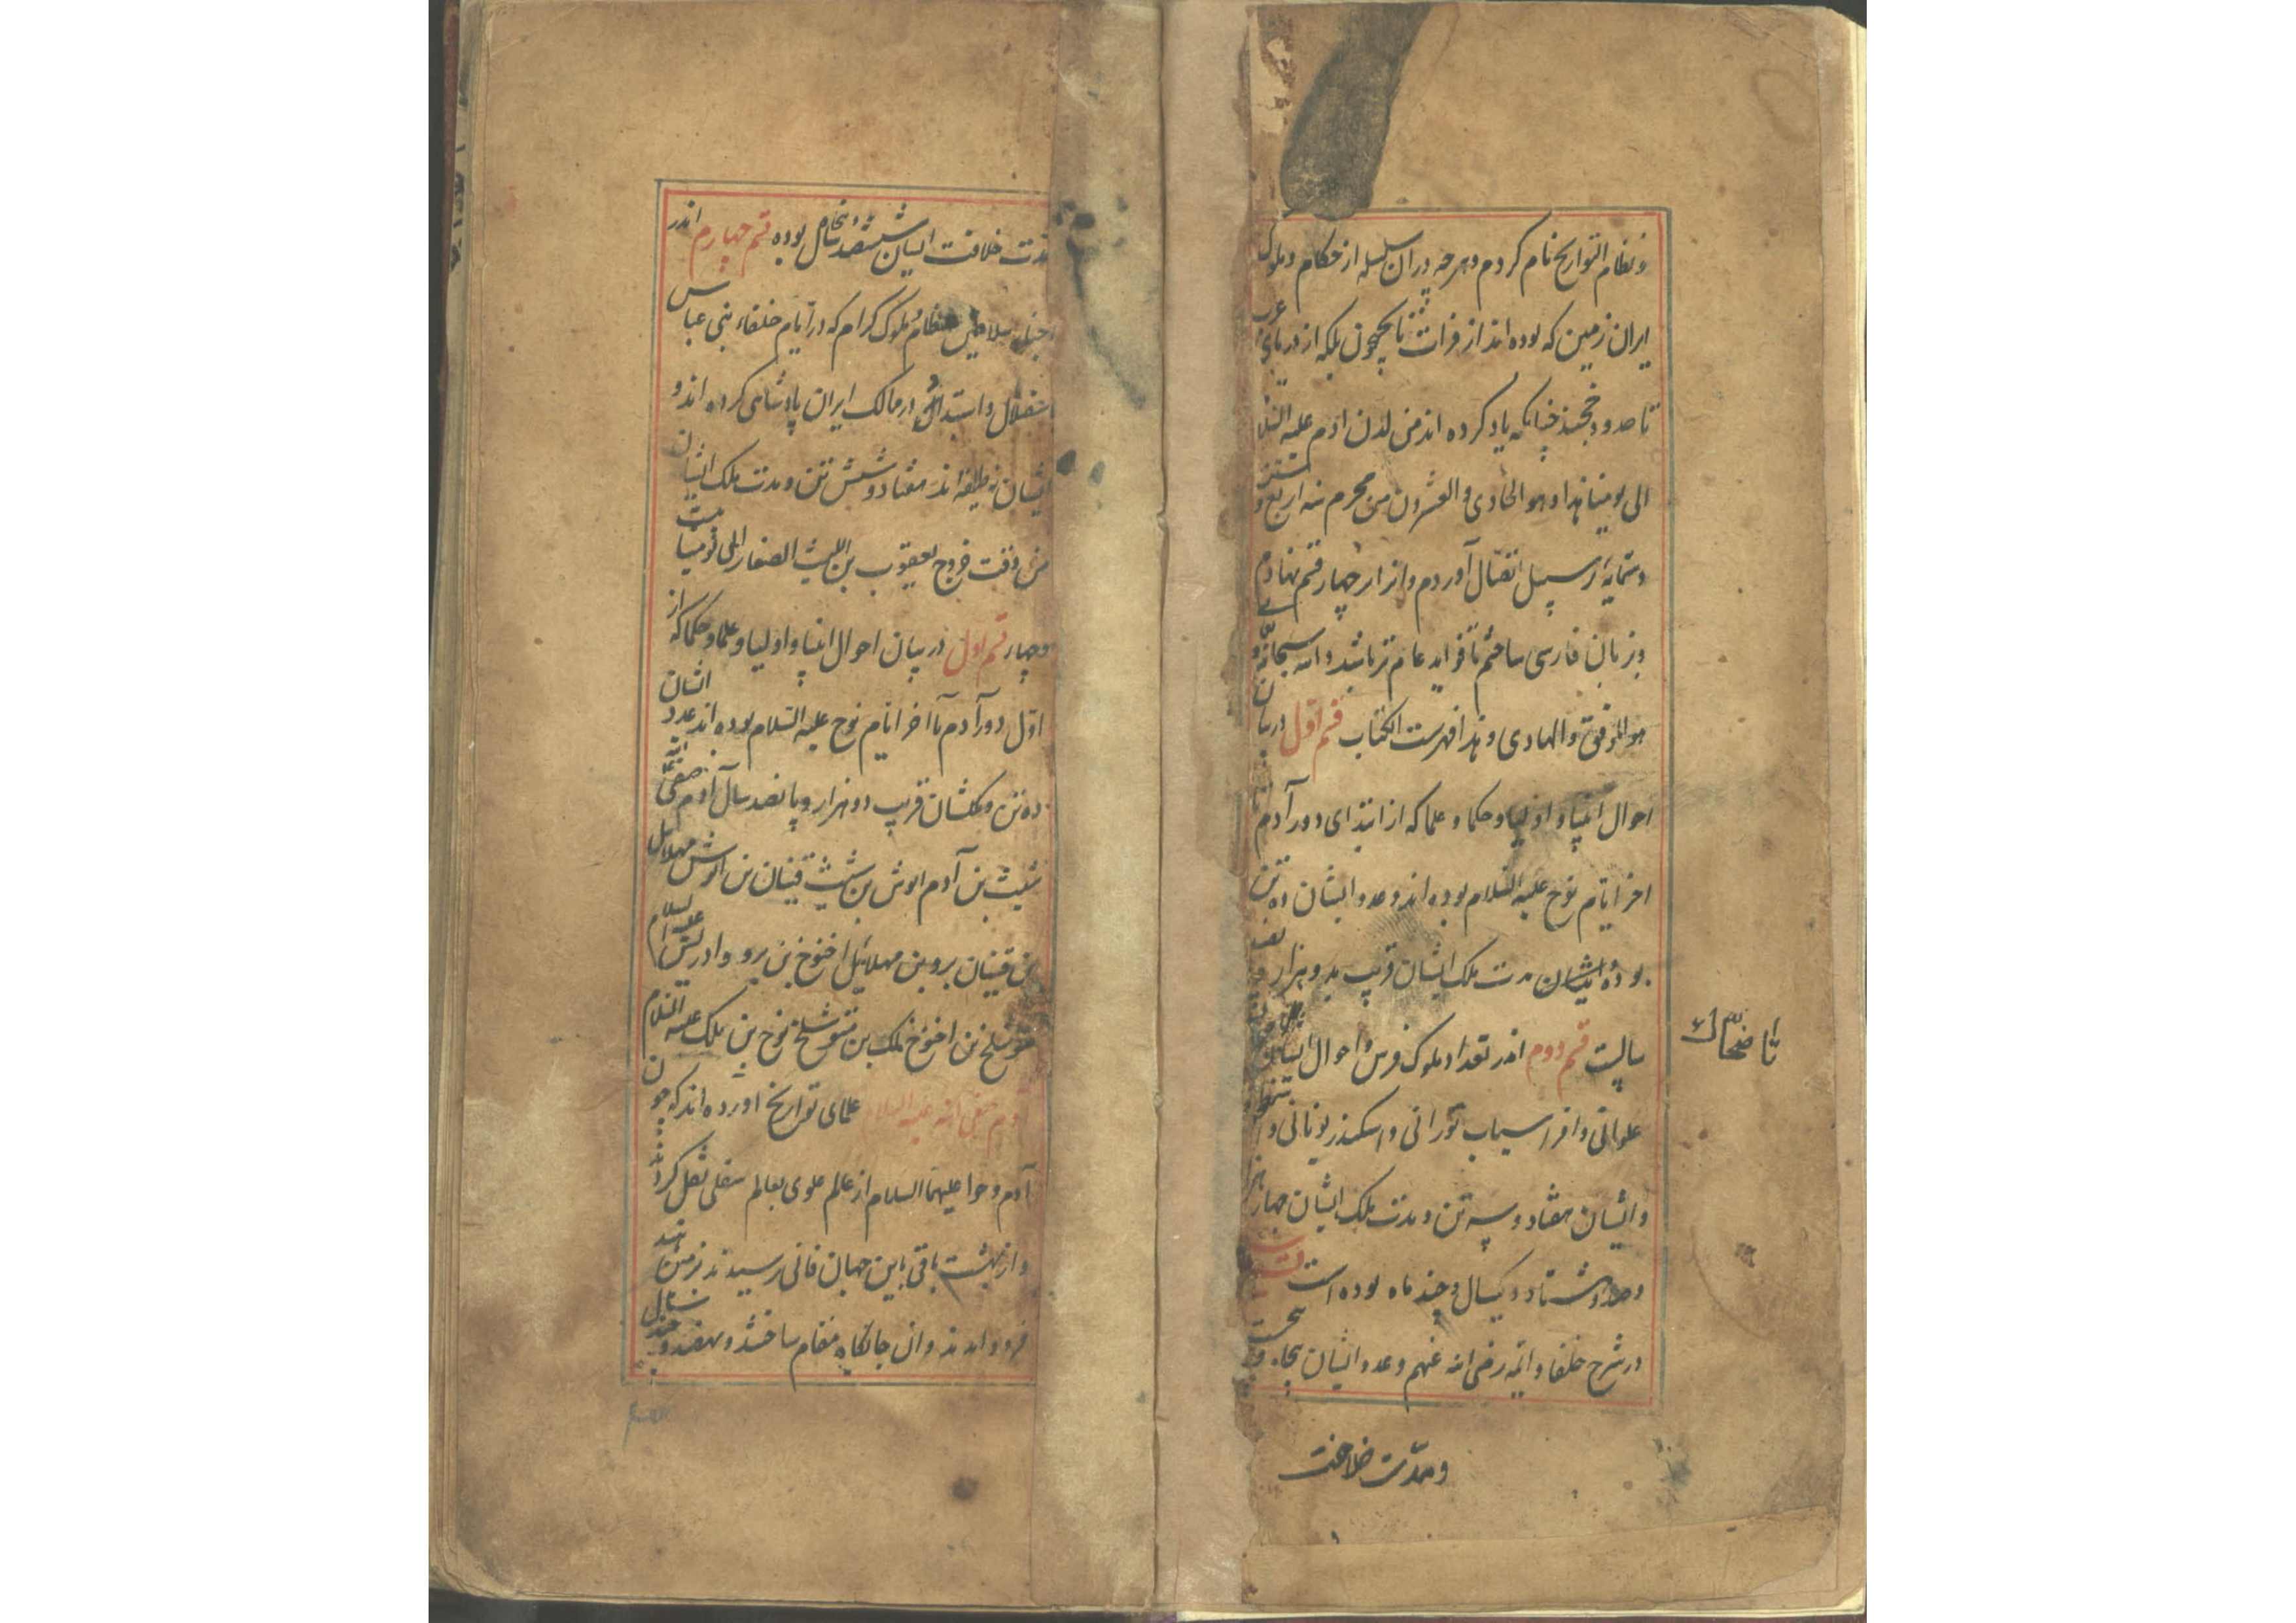 و نظام التواریخ نام کردم و هرچه در آن سلسله از حکام و ملوک
ایران زمین که بوده اند از فرات تا بجیحون بلکه از دریای عرب
تا حدود خجند چنانکه یاد کرده اند من لدن آدم علیه السلام
الی یومنا هذا و هو الحادی و العشرون من محرم سنه اربع و
وستمایه بر سبیل اتصال آوردم و از ار چهار قسم نهادم
و بزبان فارسی ساختم تا فواید عام تر باشد و الله سبحانه و
هو الموفق و الهادی و هذا فهرست الکتاب قسم اول در بیان
احوال انبیا و اولیا و حکما و علما که از ابتدای دور آدم تا
اخر ایام نوح علیه السلام بوده اند و عدد ایشان ده تن
بوده مدت ملک ایشان قریب بدو هزار
سالست قسم دوم اندر تعداد ملوک فرس و احوال
علوانی و افراسیاب تورانی و اسکندر یونانی و
و ایشان هفتاد و سه تن و مدت ملک ایشان چهار هزار
و صد و هشتاد و یکسال و چند ماه بوده است
در شرح خلفا و ائمه رضی الله عنهم و عدد ایشان پنجاه و
و مدت خلافت
تا ضحاک
مدت خلافت ایشان ششصد سال بوده قسم چهارم اندر
سلاطین عظام و ملوک کرام که در ایام خلفاء بنی عباس
استقلال و استبداد در ممالک ایران پادشاهی کرده اند و
ایشان نه طایفه اند هفتاد و شش تن و مدت ملک ایشان
من وقت خروج یعقوب بن اللیث الصفار الی یومنا
و چهار قسم اول در بیان احوال انبیا و اولیا و علما و حکما که از
اول دور آدم تا آخر ایام نوح علیه السلام بوده اند عدد ایشان
ده تن و ملکشان قریب دو هزار و پانصد سال آدم صفی الله
شیث بن آدم انوش بن شیث قینان بن انوش مهلائل
بن قینان یرد بن مهلائیل اخنوخ بن یرد و ادریس علیه السلام
متوشلخ بن اخنوخ لمک بن متوشلخ نوح بن ملک علیه السلام
آدم صفی الله علیه السلام علمای تواریخ آورده اند که چون
آدم و حوا علیهما السلام از عالم علوی بعالم سفلی نقل کردند
و از بهشت باقی باین جهان فانی رسیدند بزمین
فرود آمدند و آن جایگاه مقام ساختند و